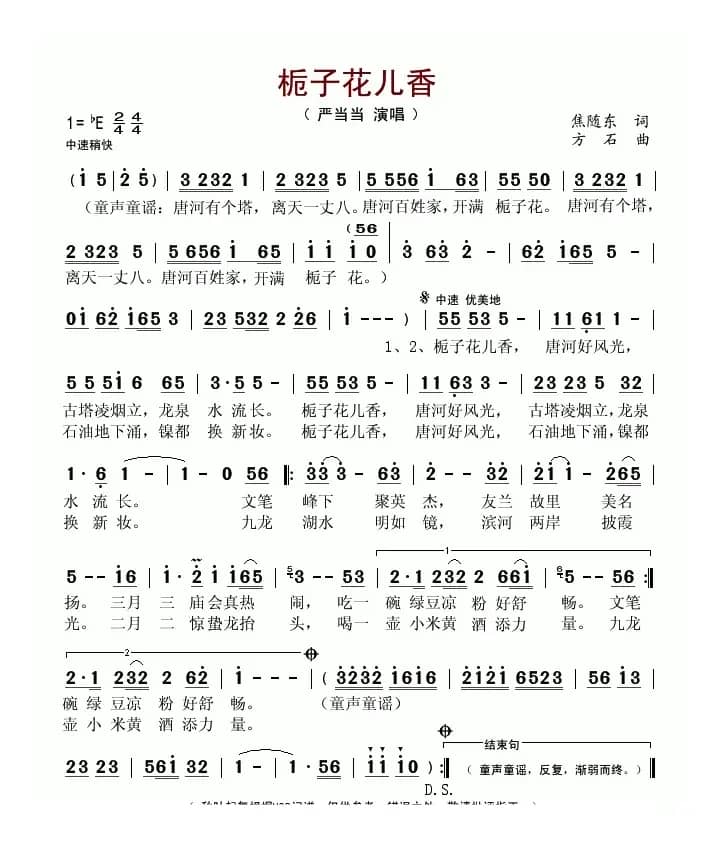 栀子花儿香
（ 严当当 演唱 ）
1= ♭E 2/4 4/4
焦随东 词
中速稍快
方 石 曲
(i 5 | 2 5) | 3 232 1 | 2 323 5 | 5 556 i 63 | 55 50 | 3 232 1 |
（童声童谣：唐河有个塔，离天一丈八。唐河百姓家，开满 栀子花。 唐河有个塔，
(56
2 323 5 | 5 656 i 65 | i i i0 | 3 63 2 - | 62 i65 6 - |
离天一丈八。唐河百姓家，开满 栀子 花。）
中速 优美地
0i 62 i65 3 | 23 532 2 26 | i - - - ) | 55 53 5 - | 11 61 1 - |
1、2、栀子花儿香， 唐河好风光，
55 5i 6 65 | 3·5 5 - | 55 53 5 - | 11 63 3 - | 23 23 5 32 |
古塔凌烟立，龙泉 水 流长。 栀子花儿香， 唐河好风光， 古塔凌烟立，龙泉
石油地下涌，镍都 换 新妆。 栀子花儿香， 唐河好风光， 石油地下涌，镍都
1·6 1 - | 1 - 0 56 |: 33 3 - 63 | 2 - - 32 | 2i i - 265 |
水 流 长。 文笔 峰下 聚英 杰， 友兰 故里 美名
换 新 妆。 九龙 湖水 明如 镜， 滨河 两岸 披霞
1
5 - - i6 | i· 2 i i65 | 3 - - 53 | 2·1 232 2 66i | 5 - - 56 :|
扬。 三月 三 庙会真热 闹， 吃一 碗 绿豆凉 粉 好舒 畅。 文笔
光。 二月 二 惊蛰龙抬 头， 喝一 壶 小米黄 酒 添力 量。 九龙
2
2·1 232 2 62 | i - - - | (3232 i6i6 | 2i2i 6523 | 56 i3 |
碗 绿 豆凉 粉 好舒 畅。 （童声童谣）
壶 小 米黄 酒 添力 量。
结束句
23 23 | 561 3 | 23 56 | i i i0) :| （ 童声童谣，反复，渐弱而终。）
D.S.